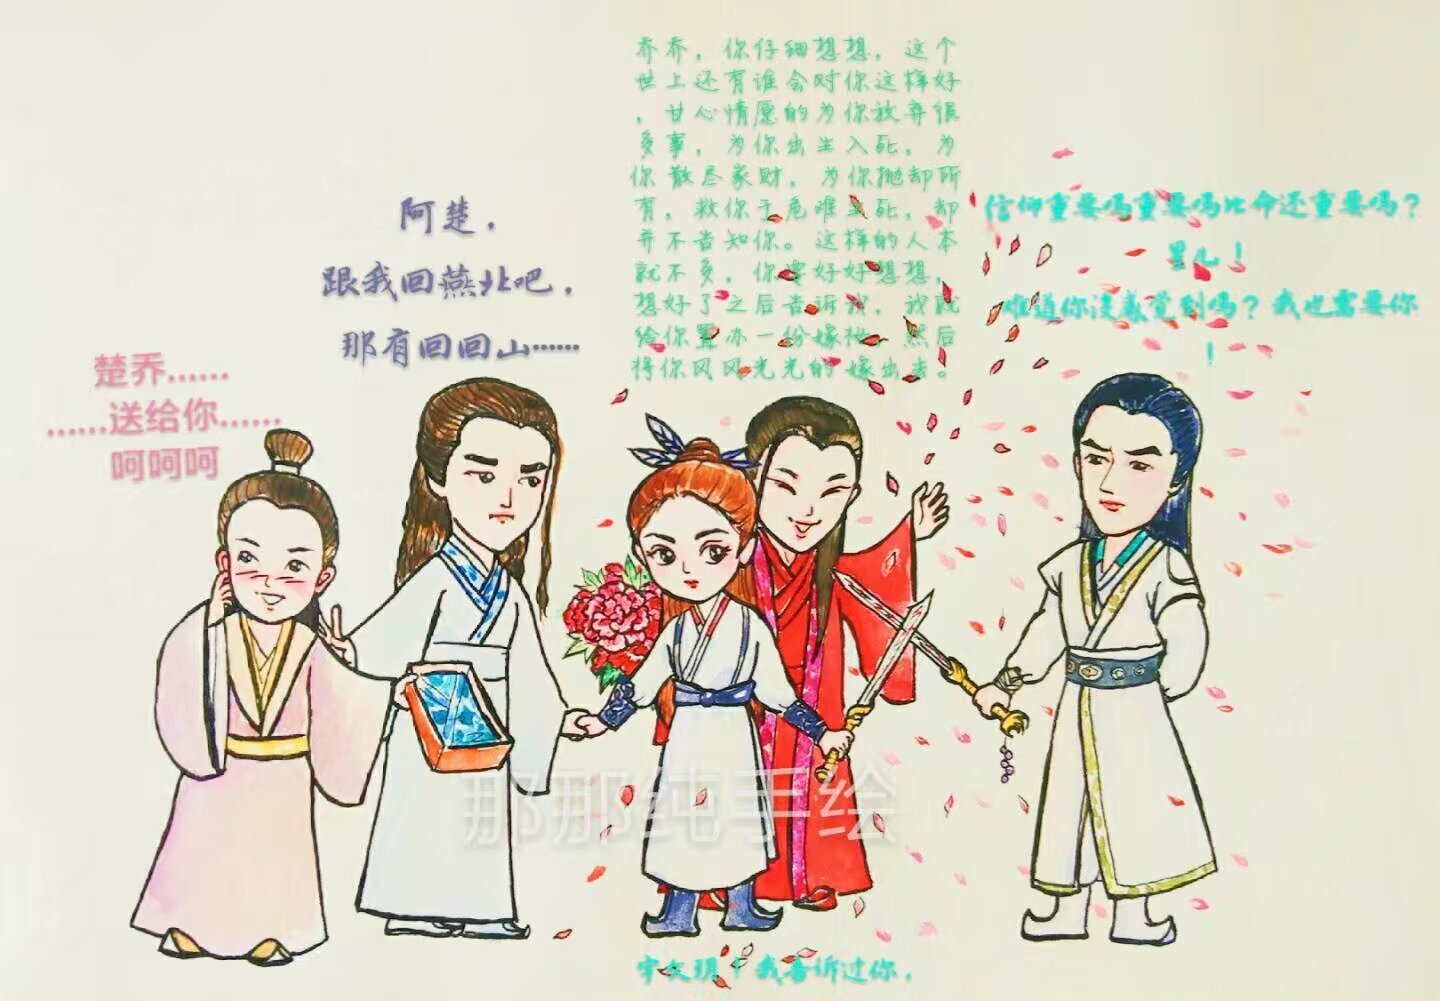 乔乔，你仔细想想，这个
世上还有谁会对你这样好
，甘心情愿的为你放弃很
多事，为你出生入死，为
你散尽家财，为你抛却所
有，救你于危难生死，却
并不告知你。这样的人本
就不多，你要好好想想，
想好了之后告诉我，我就
给你置办一份嫁妆，然后
将你风风光光的嫁出去。
阿楚，
跟我回燕北吧，
那有回回山……
信仰重要吗重要吗比命还重要吗？
星儿！
难道你没感觉到吗？我也需要你
！
楚乔……
……送给你……
呵呵呵
那那纯手绘
宇文玥！我告诉过你，